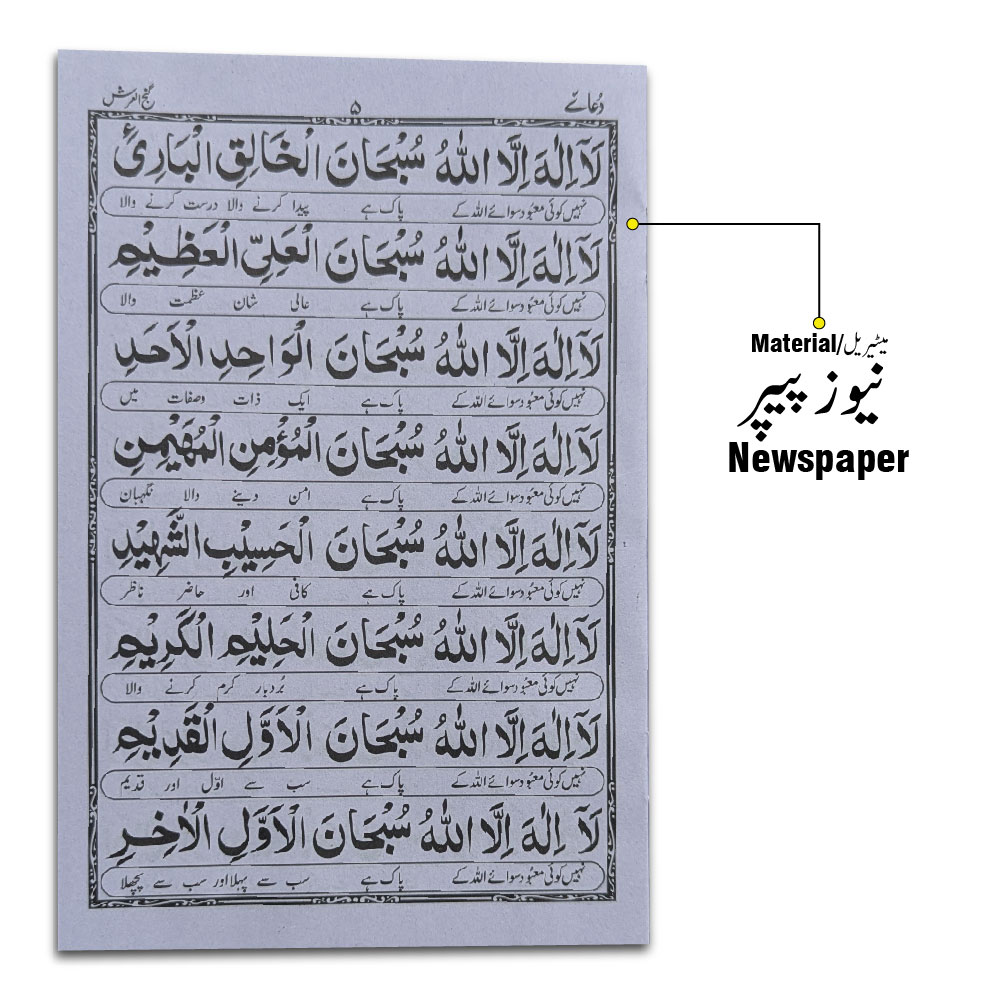 دُعائے ۵ گنج العرش
لَآ اِلٰهَ اِلَّا اللّٰهُ سُبْحَانَ الْخَالِقِ الْبَارِئِ
نہیں کوئی معبُود سوائے اللہ کے پاک ہے پیدا کرنے والا درست کرنے والا
لَآ اِلٰهَ اِلَّا اللّٰهُ سُبْحَانَ الْعَلِیِّ الْعَظِیْمِ
نہیں کوئی معبُود سوائے اللہ کے پاک ہے عالی شان عظمت والا
لَآ اِلٰهَ اِلَّا اللّٰهُ سُبْحَانَ الْوَاحِدِ الْاَحَدِ
نہیں کوئی معبُود سوائے اللہ کے پاک ہے ایک ذات وصفات میں
لَآ اِلٰهَ اِلَّا اللّٰهُ سُبْحَانَ الْمُؤْمِنِ الْمُهَیْمِنِ
نہیں کوئی معبُود سوائے اللہ کے پاک ہے امن دینے والا نگہبان
لَآ اِلٰهَ اِلَّا اللّٰهُ سُبْحَانَ الْحَسِیْبِ الشَّهِیْدِ
نہیں کوئی معبُود سوائے اللہ کے پاک ہے کافی اور حاضر ناظر
لَآ اِلٰهَ اِلَّا اللّٰهُ سُبْحَانَ الْحَلِیْمِ الْكَرِیْمِ
نہیں کوئی معبُود سوائے اللہ کے پاک ہے بُردبار کرم کرنے والا
لَآ اِلٰهَ اِلَّا اللّٰهُ سُبْحَانَ الْاَوَّلِ الْقَدِیْمِ
نہیں کوئی معبُود سوائے اللہ کے پاک ہے سب سے اوّل اور قدیم
لَآ اِلٰهَ اِلَّا اللّٰهُ سُبْحَانَ الْاَوَّلِ الْاٰخِرِ
نہیں کوئی معبُود سوائے اللہ کے پاک ہے سب سے پہلا اور سب سے پچھلا
Material/میٹیریل
نیوز پیپر
Newspaper